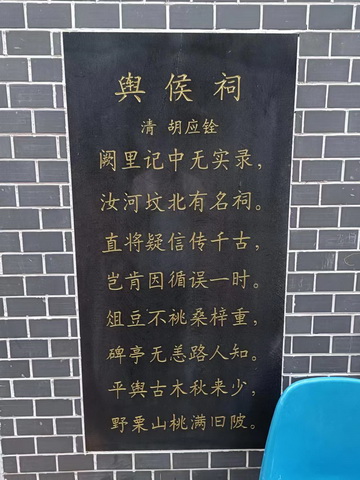 舆侯祠
清 胡应铨
阙里记中无实录，
汝河坟北有名祠。
直将疑信传千古，
岂肯因循误一时。
俎豆不祧桑梓重，
碑亭无恙路人知。
平舆古木秋来少，
野粟山桃满旧陂。